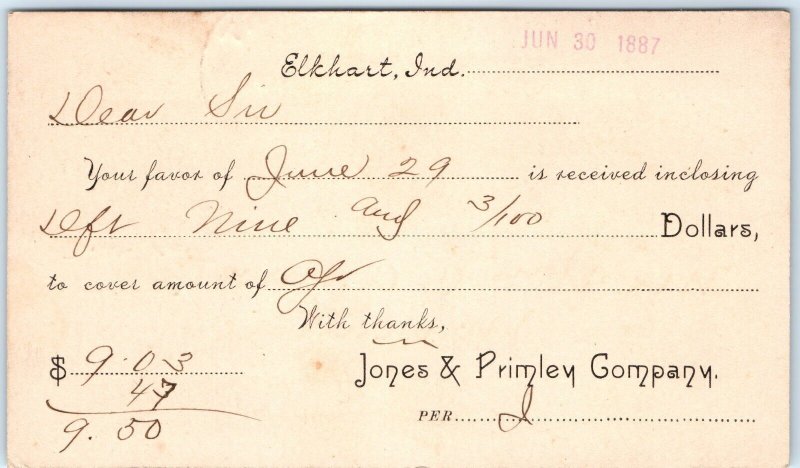 JUN 30 1887
Elkhart, Ind.
Dear Sir
Your favor of June 29 is received inclosing
Dft Nine and 3/100 Dollars,
to cover amount of
With thanks,
$ 9.03
Jones & Primley Company.
47
PER J
9.50